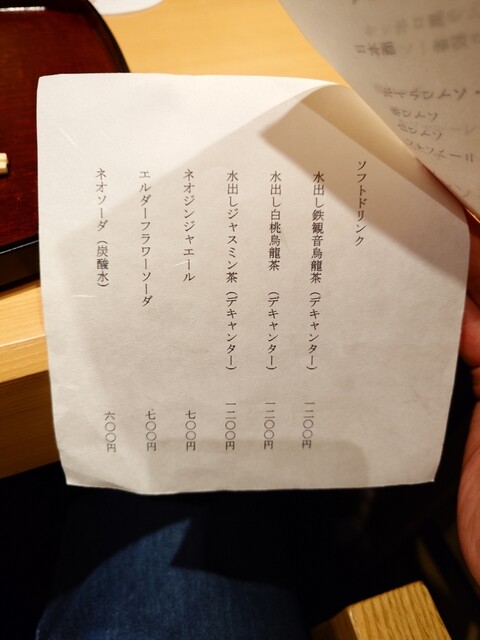 ソフトドリンク
水出し鉄観音烏龍茶（デキャンター） 一二〇〇円
水出し白桃烏龍茶（デキャンター） 一二〇〇円
水出しジャスミン茶（デキャンター） 一二〇〇円
ネオジンジャエール 七〇〇円
エルダーフラワーソーダ 七〇〇円
ネオソーダ（炭酸水） 六〇〇円